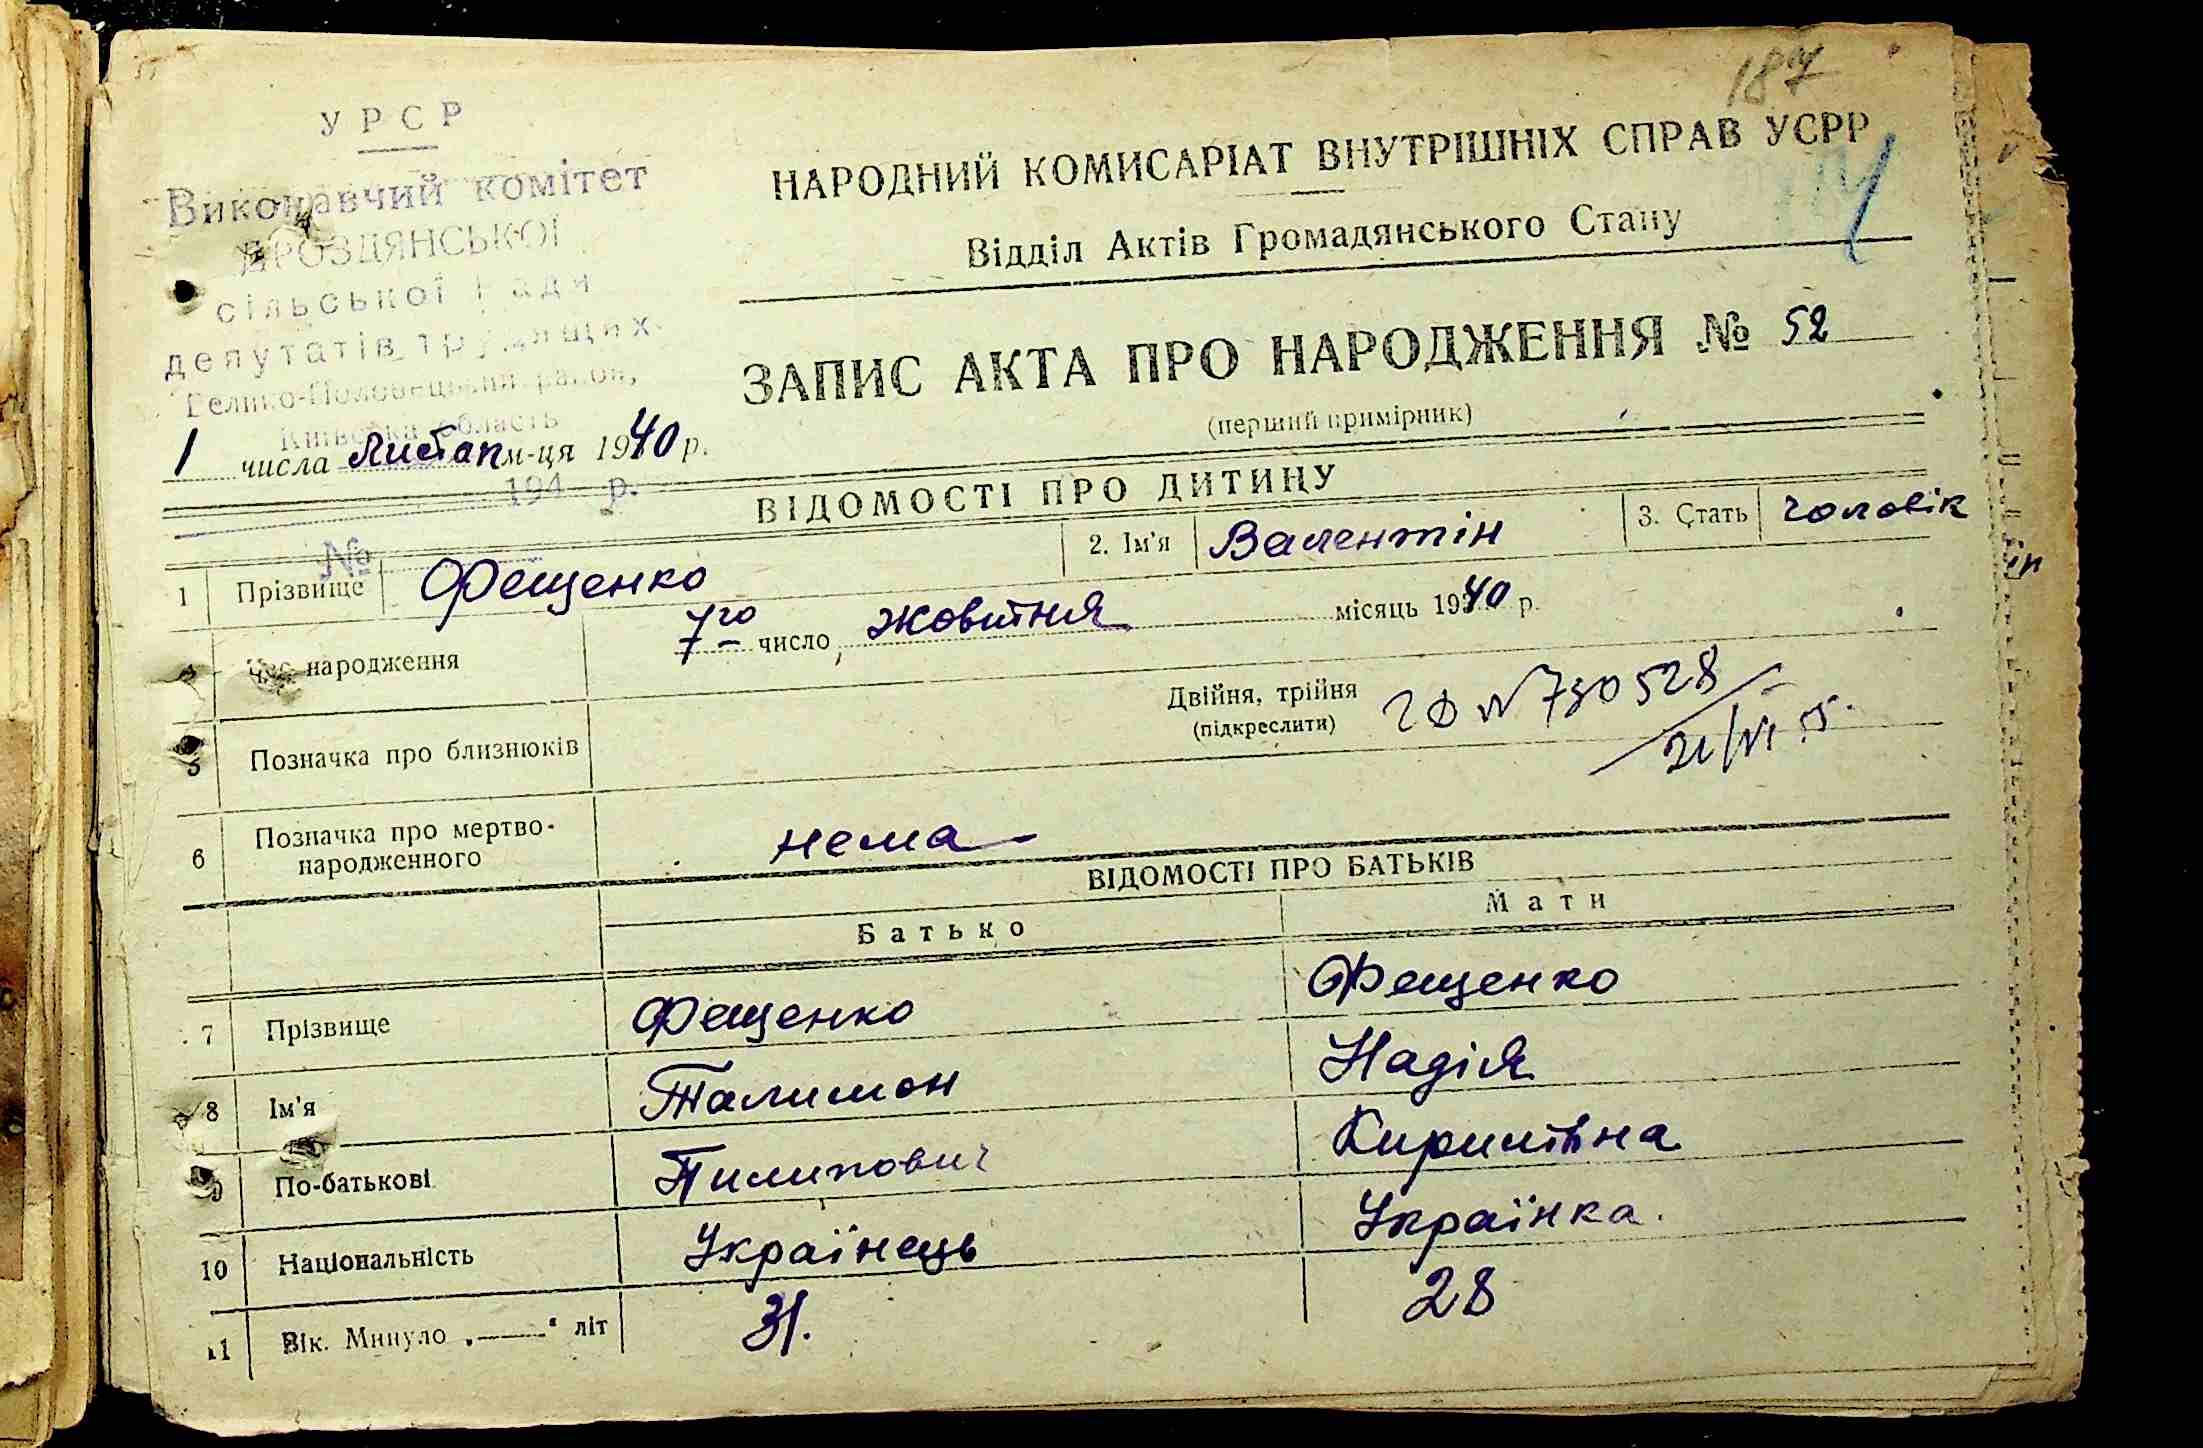 187
УРСР
Виконавчий комітет
ДРОЗДЯНСЬКОЇ
сільської Ради
депутатів трудящих
Велико-Половецький район,
Київська область
194 р.
№
НАРОДНИЙ КОМИСАРІАТ ВНУТРІШНІХ СПРАВ УСРР
Відділ Актів Громадянського Стану
ЗАПИС АКТА ПРО НАРОДЖЕННЯ № 52
(перший примірник)
1 числа Листап м-ця 1940 р.
ВІДОМОСТІ ПРО ДИТИНУ
1 Прізвище Фещенко 2. Ім'я Валентін 3. Стать чоловік
4 Час народження 7го число, жовтня місяць 1940 р.
5 Позначка про близнюків Двійня, трійня
(підкреслити)
№ 730528
21/VI 55.
6 Позначка про мертво-
народженного нема
ВІДОМОСТІ ПРО БАТЬКІВ
Батько Мати
7 Прізвище Фещенко Фещенко
8 Ім'я Талимон Надія
9 По-батькові Пилипович Кирилівна
10 Національність Українець Українка.
11 Вік. Минуло „——“ літ 31. 28